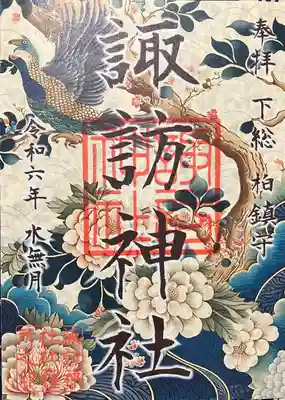 奉拝 下総 柏鎮守
諏訪神社
令和六年 水無月